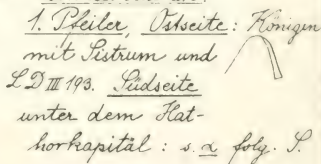 1. Pfeiler, Ostseite: Königin
mit Sistrum und
LD III 193. Südseite
unter dem Hat-
horkapitäl: s. α folg. S.